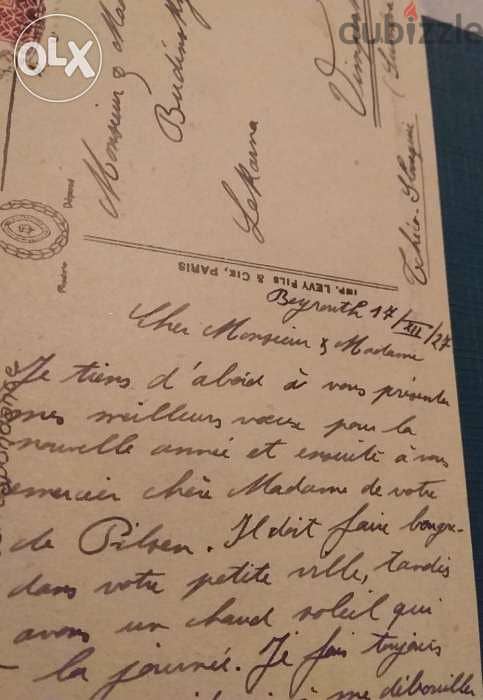 OLX
dubizzle
Monsieur & Ma
Budinsky
Lekarna
Tchéco-Slovaquie
Déposé
Modèle
IMP. LEVY FILS & CIE, PARIS
Beyrouth 17/XII/27
Cher Monsieur & Madame
Je tiens d'abord à vous présenter
mes meilleurs vœux pour la
nouvelle année et ensuite à vous
remercier chère Madame de votre
de Pilsen. Il doit faire bougre-
dans votre petite ville, tandis
avons un chaud soleil qui
la journée. Je fais toujours
me débrouiller